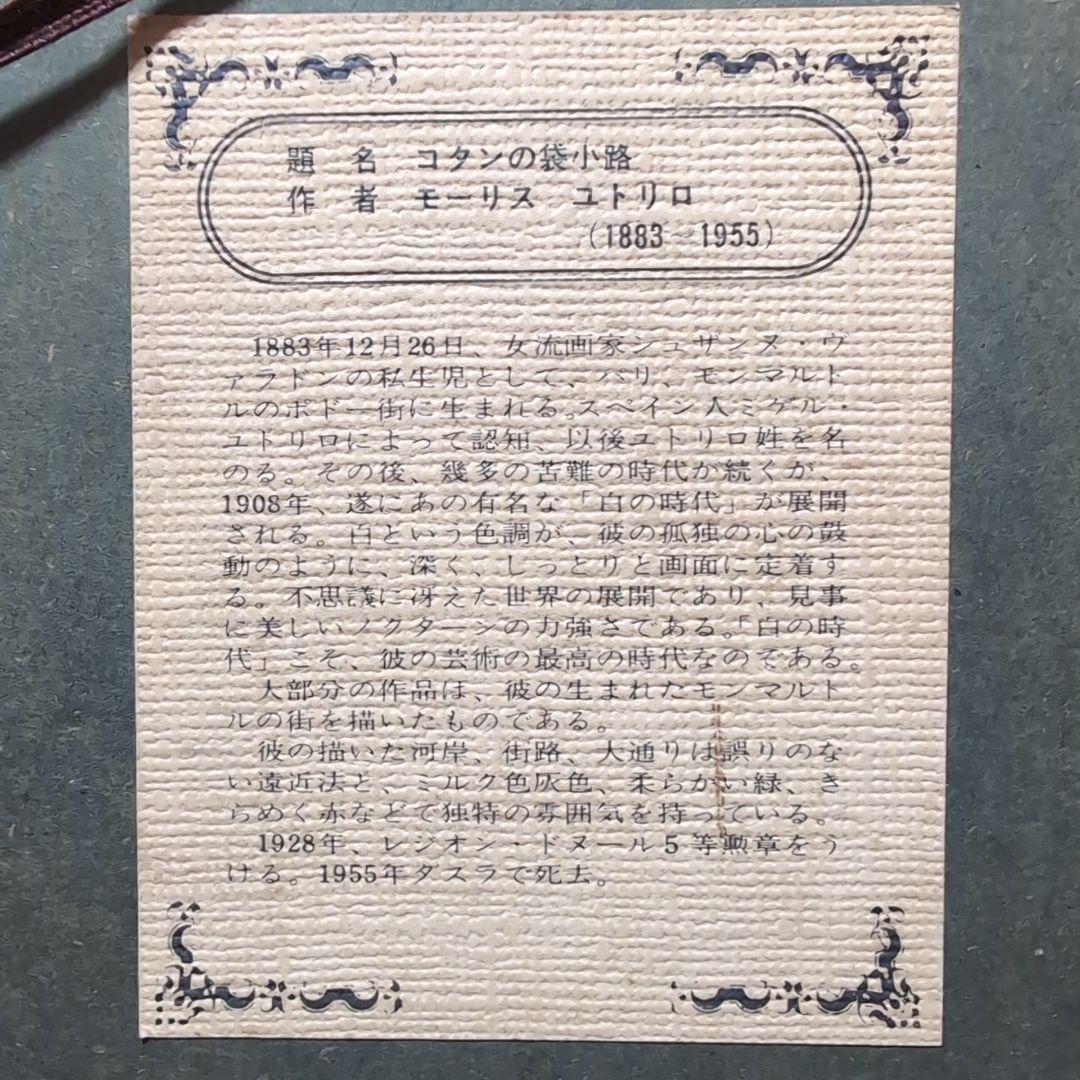 題　名　コタンの袋小路
作　者　モーリス　ユトリロ
(1883～1955)
1883年12月26日、女流画家シュザンヌ・ヴ
ァラドンの私生児として、パリ、モンマルト
ルのポドー街に生まれる。スペイン人ミゲル・
ユトリロによって認知、以後ユトリロ姓を名
のる。その後、幾多の苦難の時代が続くが、
1908年、遂にあの有名な「白の時代」が展開
される。白という色調が、彼の孤独の心の鼓
動のように、深く、しっとりと画面に定着す
る。不思議に冴えた世界の展開であり、見事
に美しいノクターンの力強さである。「白の時
代」こそ、彼の芸術の最高の時代なのである。
大部分の作品は、彼の生まれたモンマルト
ルの街を描いたものである。
彼の描いた河岸、街路、大通りは誤りのな
い遠近法と、ミルク色灰色、柔らかい緑、き
らめく赤などで独特の雰囲気を持っている。
1928年、レジオン・ドヌール5等勲章をう
ける。1955年ダスラで死去。